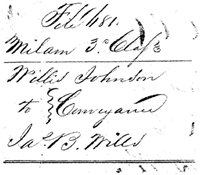 File 481.
Milam 3.d Class
Willis Johnson
to } Conveyance
Jas. B. Wills